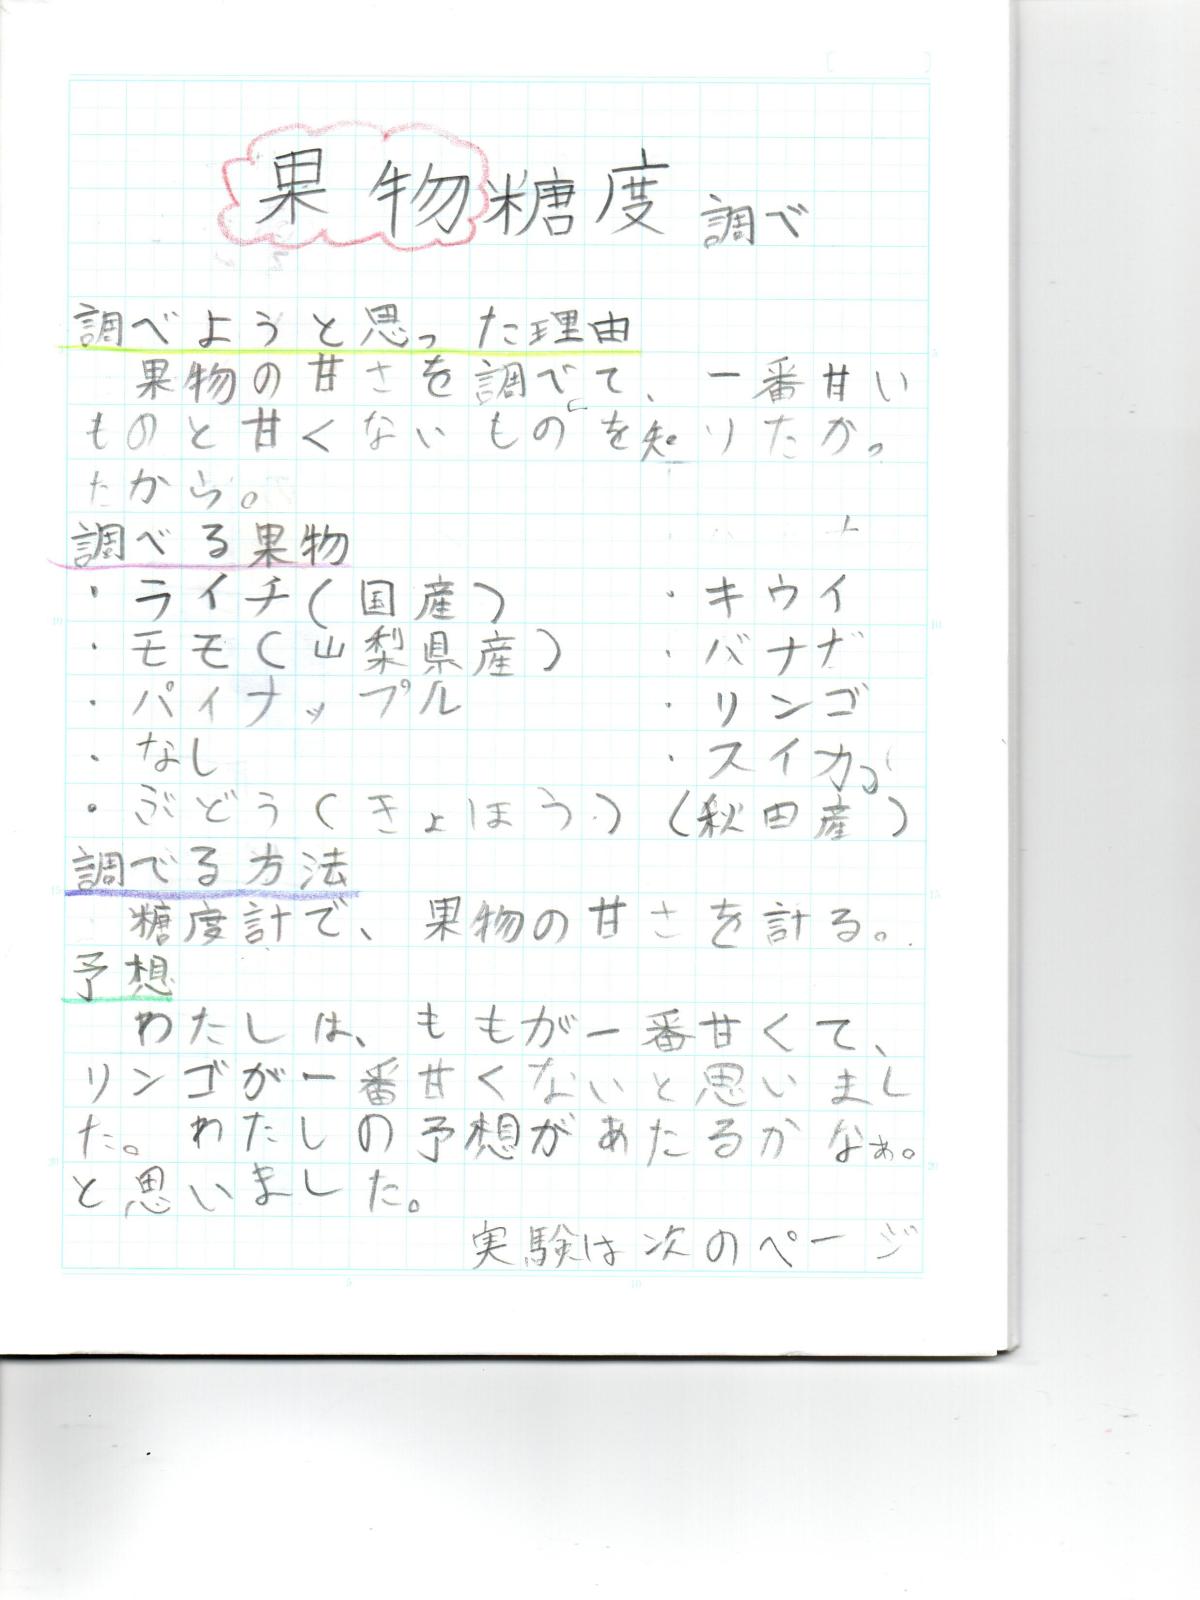 果物糖度調べ
調べようと思った理由
果物の甘さを調べて、一番甘い
ものと甘くないものを知りたかっ
たから。
調べる果物
・ライチ(国産) ・キウイ
・モモ(山梨県産) ・バナナ
・パイナップル ・リンゴ
・なし ・スイカ
・ぶどう(きょほう) (秋田産)
調べる方法
糖度計で、果物の甘さを計る。
予想
わたしは、ももが一番甘くて、
リンゴが一番甘くないと思いまし
た。わたしの予想があたるかなぁ。
と思いました。
実験は次のページ